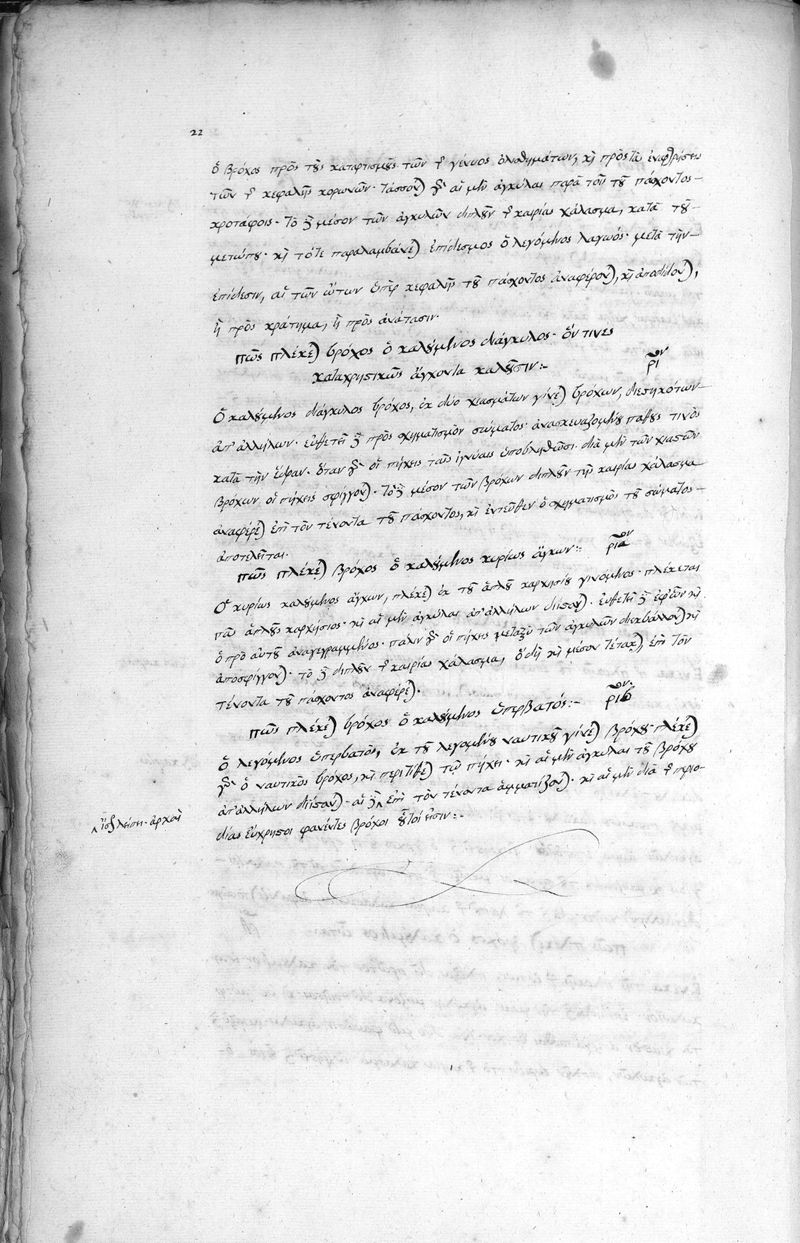 22
ὁ βρόχος πρὸς τοὺς καταρτισμοὺς τῶν τῆς γένυος ὀλισθημάτων, καὶ πρὸς τὰς
τῶν τῆς κεφαλῆς κορωνῶν· τάσσονται γὰρ αἱ μὲν ἀγκύλαι παρὰ τοῖς τοῦ πάσχοντος
κροτάφοις· τὸ δὲ μέσον τῶν ἀγκυλῶν διπλοῦν τῆς καιρίας χάλασμα, κατὰ τοῦ
μετώπου· καὶ τότε παραλαμβάνεται ἐπίδεσμος ὁ λεγόμενος λαγωός· μετὰ τὴν
ἐπίδεσιν, αἱ τῶν ὤτων ὑπὲρ κεφαλῆς τοῦ πάσχοντος ἀναφέρονται, καὶ ἀποδίδονται,
ἢ πρὸς κράτημα, ἢ πρὸς ἀνάτασιν·
πῶς πλέκεται βρόχος ὁ καλούμενος διάγκυλος· ὅν τινες
καταχρηστικῶς ἄγχοντα καλοῦσιν:- ριον
Ὁ καλούμενος διάγκυλος βρόχος, ἐκ δύο χιασμάτων γίνεται βρόχων, διεστηκότων
ἀπ' ἀλλήλων· εὐθετεῖ δὲ πρὸς σχηματισμὸν σώματος ἀνασκευαζομένου πάθους τινὸς
κατὰ τὴν ἕδραν· ὅταν γὰρ οἱ πήχεις ταῖς ἰγνύαις ὑποβληθῶσι διὰ μὲν τῶν χιαστῶν
βρόχων οἱ πήχεις σφίγγονται· τὸ δὲ μέσον τῶν βρόχων διπλοῦν τῆς καιρίας χάλασμα
ἀναφέρεται ἐπὶ τὸν τένοντα τοῦ πάσχοντος, καὶ ἐντεῦθεν ὁ σχηματισμὸς τοῦ σώματος
ἀποτελεῖται.
πῶς πλέκεται βρόχος ὁ καλούμενος κυρίως ἄγχων:- ριαον
Ὁ κυρίως καλούμενος ἄγχων, πλέκεται ἐκ τοῦ ἁπλοῦ καρχησίου γινόμενος· πλέκεται
πῶς ἁπλοῦς καρχήσιος· καὶ αἱ μὲν ἀγκύλαι ἀπ' ἀλλήλων διίστανται· εὐθετεῖ δὲ ἐφ' ὧν καὶ
ὁ πρὸ αὐτοῦ ἀναγεγραμμένος· πάλιν γὰρ οἱ πήχεις μεταξὺ τῶν ἀγκυλῶν διεκβάλλονται καὶ
ἀποσφίγγονται· τὸ δὲ διπλοῦν τῆς καιρίας χάλασμα, ὃ δὴ καὶ μέσον τέτακται, ἐπὶ τὸν
τένοντα τοῦ πάσχοντος ἀναφέρεται.
πῶς πλέκεται βρόχος ὁ καλούμενος ὑπερβατός:- ριβον
Ὁ λεγόμενος ὑπερβατὸς, ἐκ τοῦ λεγομένου ναυτικοῦ γίνεται βρόχου· πλέκεται
γὰρ ὁ ναυτικὸς βρόχος, καὶ περιτίθεται τῷ πήχει· καὶ αἱ μὲν ἀγκύλαι τοῦ βρόχου
ἀπ' ἀλλήλων διίστανται· αἱ δὲ ἐπὶ τὸν τένοντα ἁμματίζονται· καὶ αἱ μὲν διὰ τῆς
εὔχρηστοι φανέντες βρόχοι οὗτοί εἰσιν:-
λείπει ἀρχαὶ